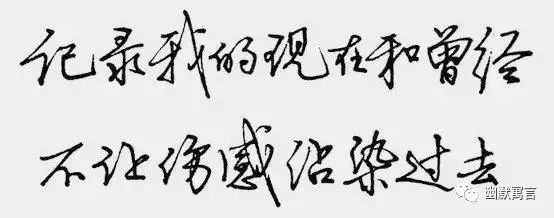 记录我的现在和曾经
不让伤感沾染过去
幽默寓言